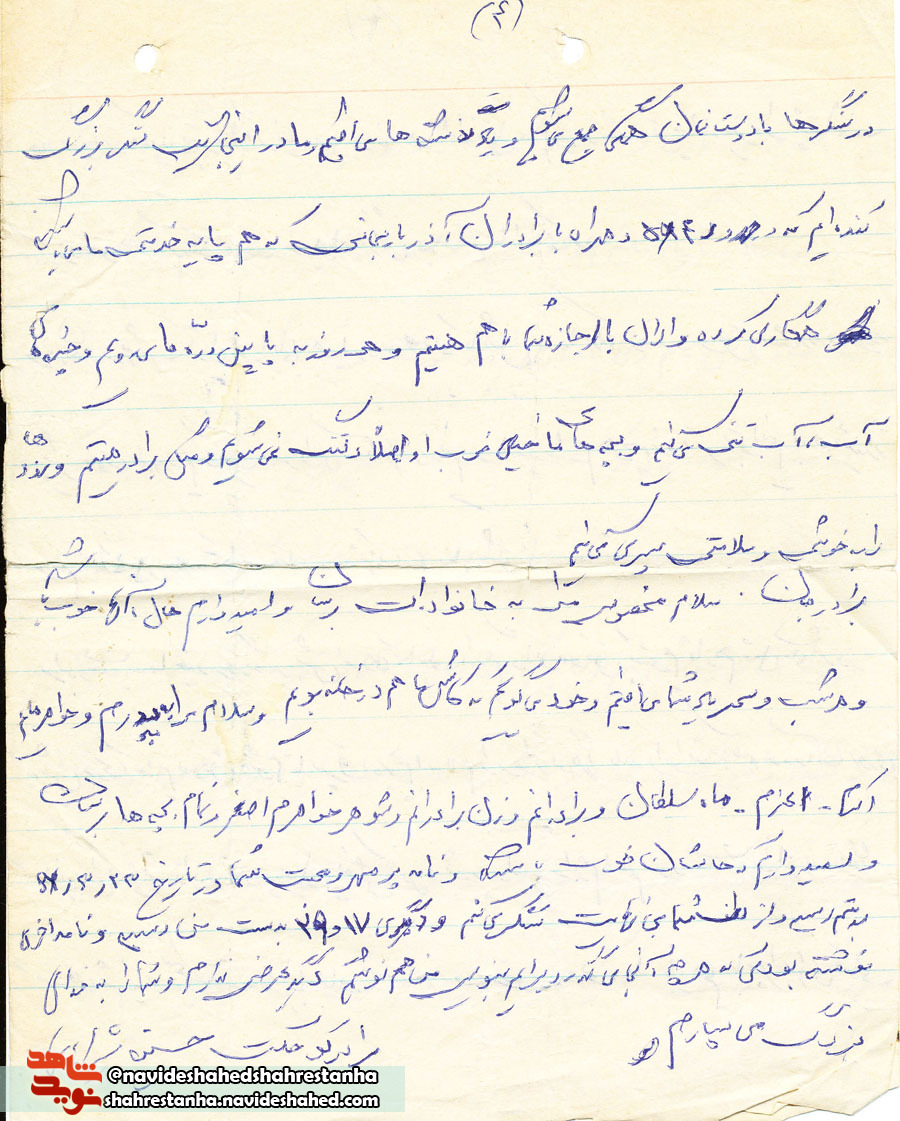 (۴)
در سنگرها با دوستانمان همگی جمع می شویم و یاد گذشته ها می افتیم و ما در اینجا سنگر بزرگ
کنده ایم که در و مهران با برادران آذربایجانی که هم پایه خدمتی ما می باشند
همکاری کرده و الان با اجازه شما با هم هستیم و هر روز به پایین دره ها می رویم و
آب، آب تنی می کنیم و بچه های ما خیلی خوب و اصلاً دلتنگ نمی شویم و مثل برادر هستیم و روزها
را به خوشی و سلامتی سپری می کنیم
برادر جان . سلام مخصوص مرا به خانواده ات برسان و امیدوارم حال آنها خوب باشد
و هر شب و سحر یاد شما می افتم و خود می گویم که کاش ما هم در خانه بودیم و سلام مرا به پدرم و خواهرهایم
اکرم - اعزم - ماه سلطان و برادرانم و زن برادرانم و شوهر خواهرم اصغر و تمام بچه ها برسان
و امیدوارم که حالشان خوب باشد و نامه پر مهر و محبت شما در تاریخ ۲۳ر۳ر
بدستم رسید و از لطف شما بی نهایت تشکر می کنم و ۱۷ و بدست من رسید و نامه آخری
نوشته بودی که هر چه آنجا می گذرد برایم بنویس من هم نوشتم دیگر عرضی ندارم و شما را به خدای
بزرگ می سپارم
برادر کوچکت
شاهد
نوید
@navideshahedshahrestanha
shahrestanha.navideshahed.com